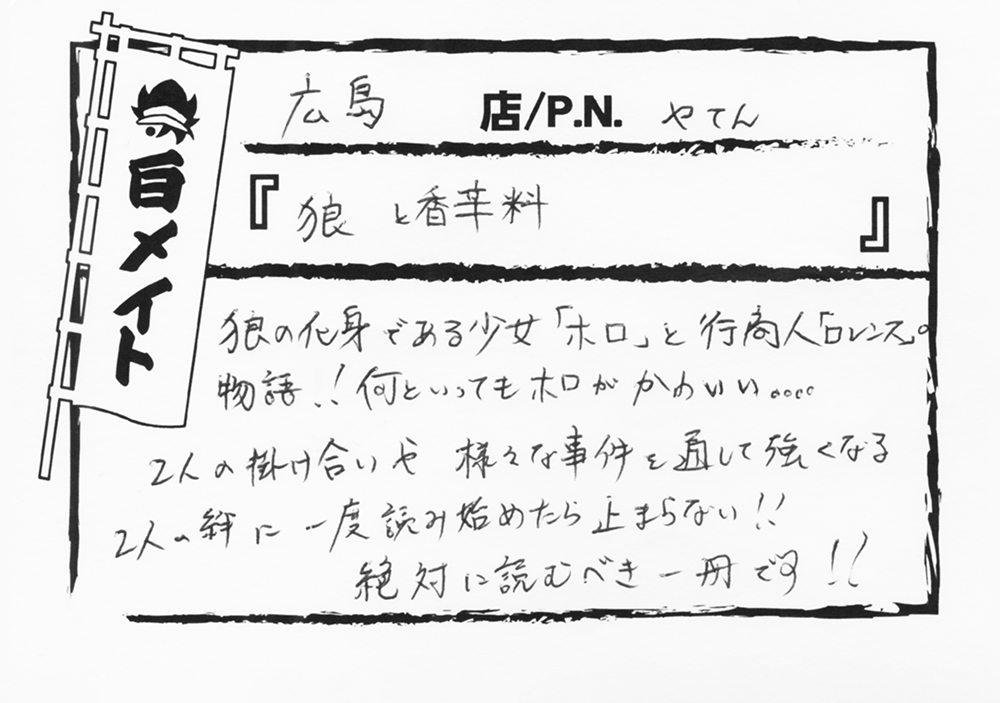 広島 店/P.N. やてん
『狼と香辛料』
百メイト
狼の化身である少女「ホロ」と行商人「ロレンス」の
物語!!何といってもホロがかわいい。。。。
2人の掛け合いや様々な事件を通して強くなる
2人の絆に一度読み始めたら止まらない!!
絶対に読むべき一冊です!!